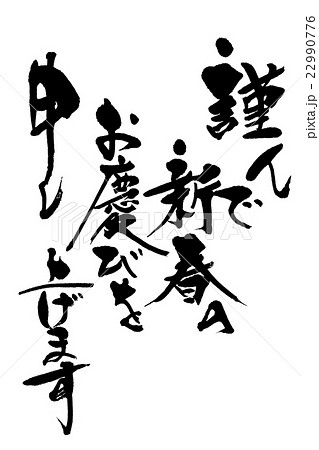 謹んで
新春の
お慶びを
申し
上げます
PIXTA
pixta.jp - 22990776